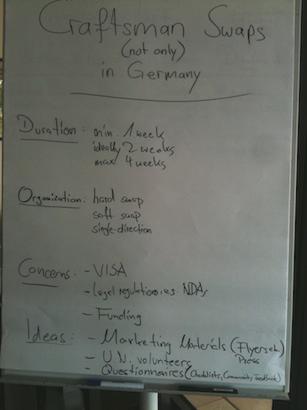 Craftsman Swaps
(not only)
in Germany
Duration: min. 1 week
ideally 2 weeks
max 4 weeks
Organization: hard swap
soft swap
single-direction
Concerns: - VISA
- legal regulations NDAs
- Funding
Ideas: - Marketing Materials (Flyers
Press
- U.N. volunteers
- Questionnaires (Checklists, Community, Feedback)